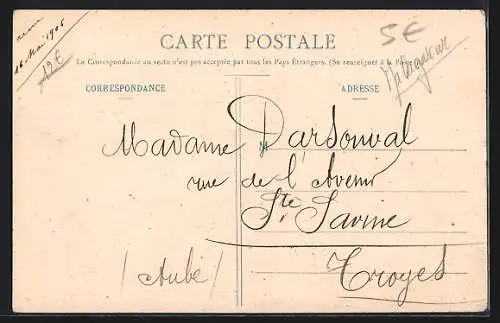 16 Mai 1906
12 €
5 €
CARTE POSTALE
La Correspondance au recto n'est pas acceptée par tous les Pays Étrangers. (Se renseigner à la Poste)
CORRESPONDANCE
ADRESSE
Madame Darsonval
rue de l'Avenir
Ste Savine
(Aube)
Troyes